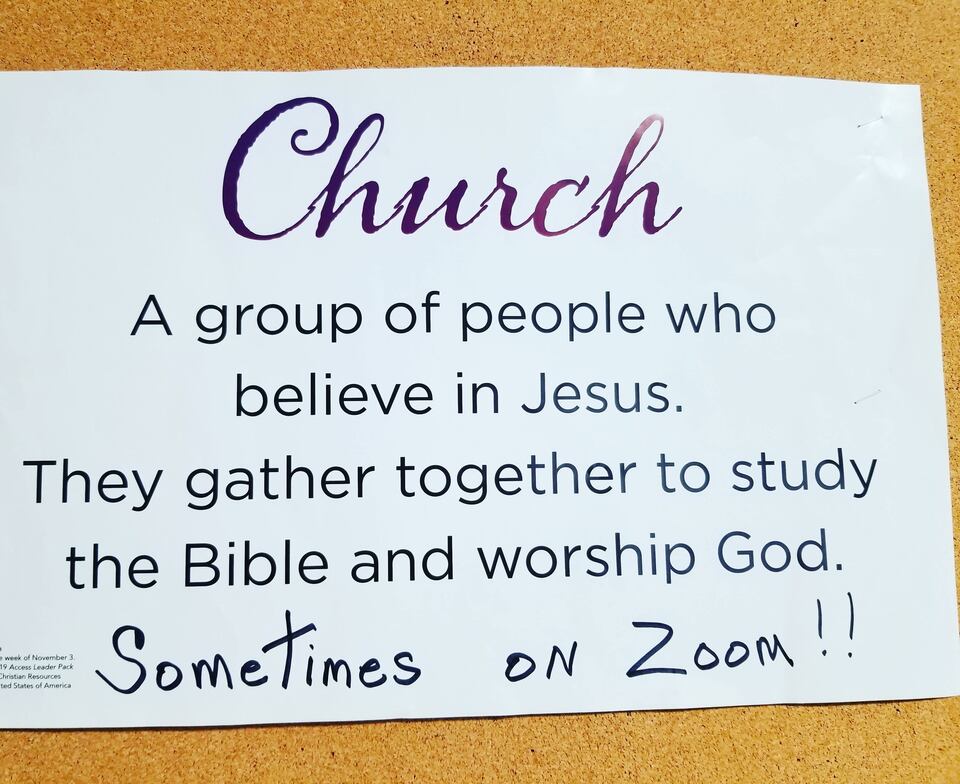 Church
A group of people who
believe in Jesus.
They gather together to study
the Bible and worship God.
Sometimes on Zoom!!
week of November 3.
19 Access Leader Pack
Christian Resources
ted States of America